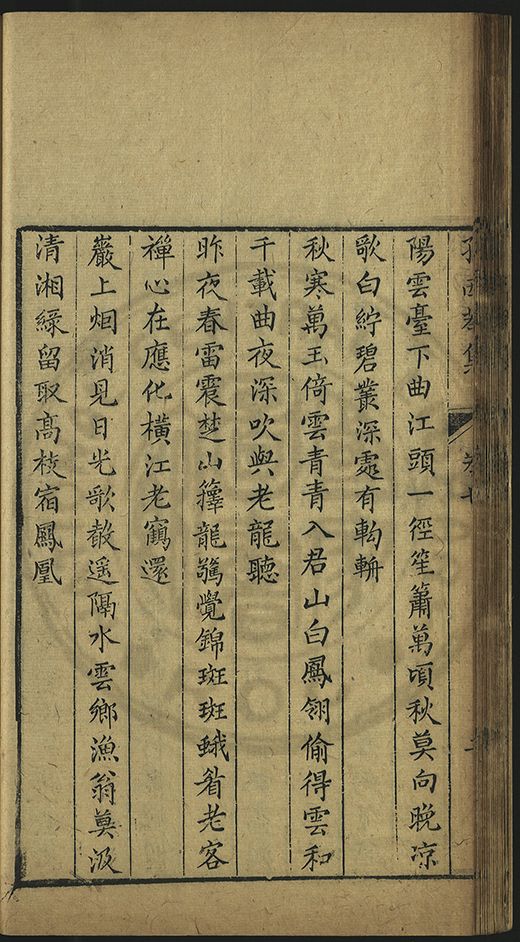 陽雲臺下曲江頭一徑笙簫萬頃秋莫向晚凉
歌白紵碧叢深處有軥輈
秋寒萬玉倚雲青青入君山白鳳翎偷得雲和
千載曲夜深吹與老龍聽
昨夜春雷震楚山籜龍驚覺錦斑斑蛾眉老客
禪心在應化橫江老鶴還
巖上烟消見日光歌聲遥隔水雲鄉漁翁莫汲
清湘緑留取髙枝宿鳳凰